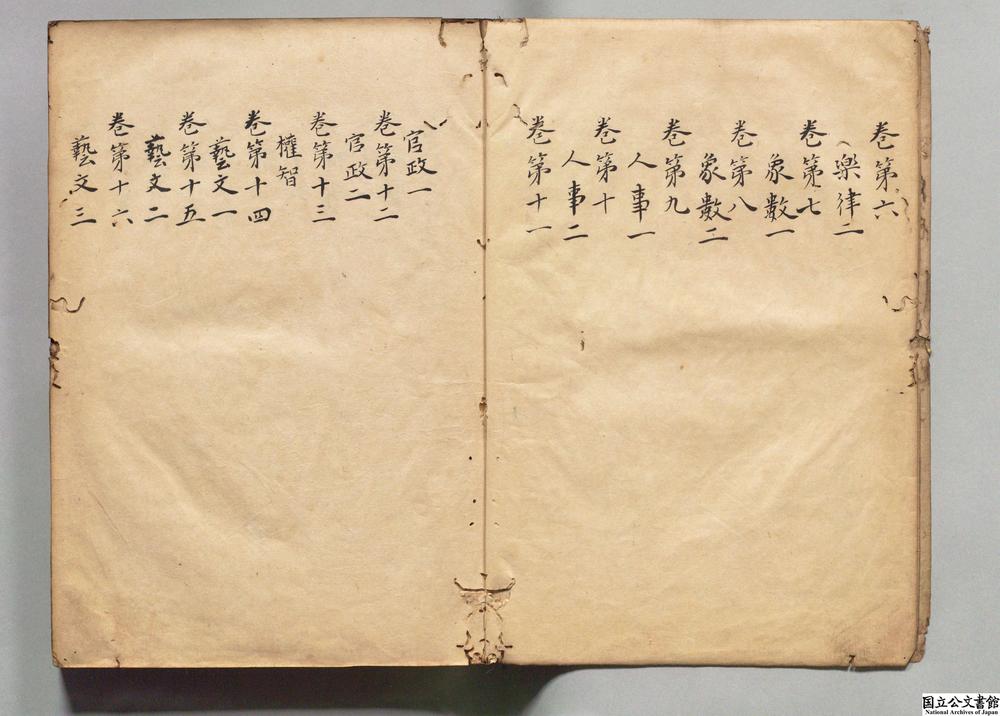 卷第六
樂律二
卷第七
象數一
卷第八
象數二
卷第九
人事一
卷第十
人事二
卷第十一
官政一
卷第十二
官政二
卷第十三
權智
卷第十四
藝文一
卷第十五
藝文二
卷第十六
藝文三
国立公文書館
National Archives of Japan